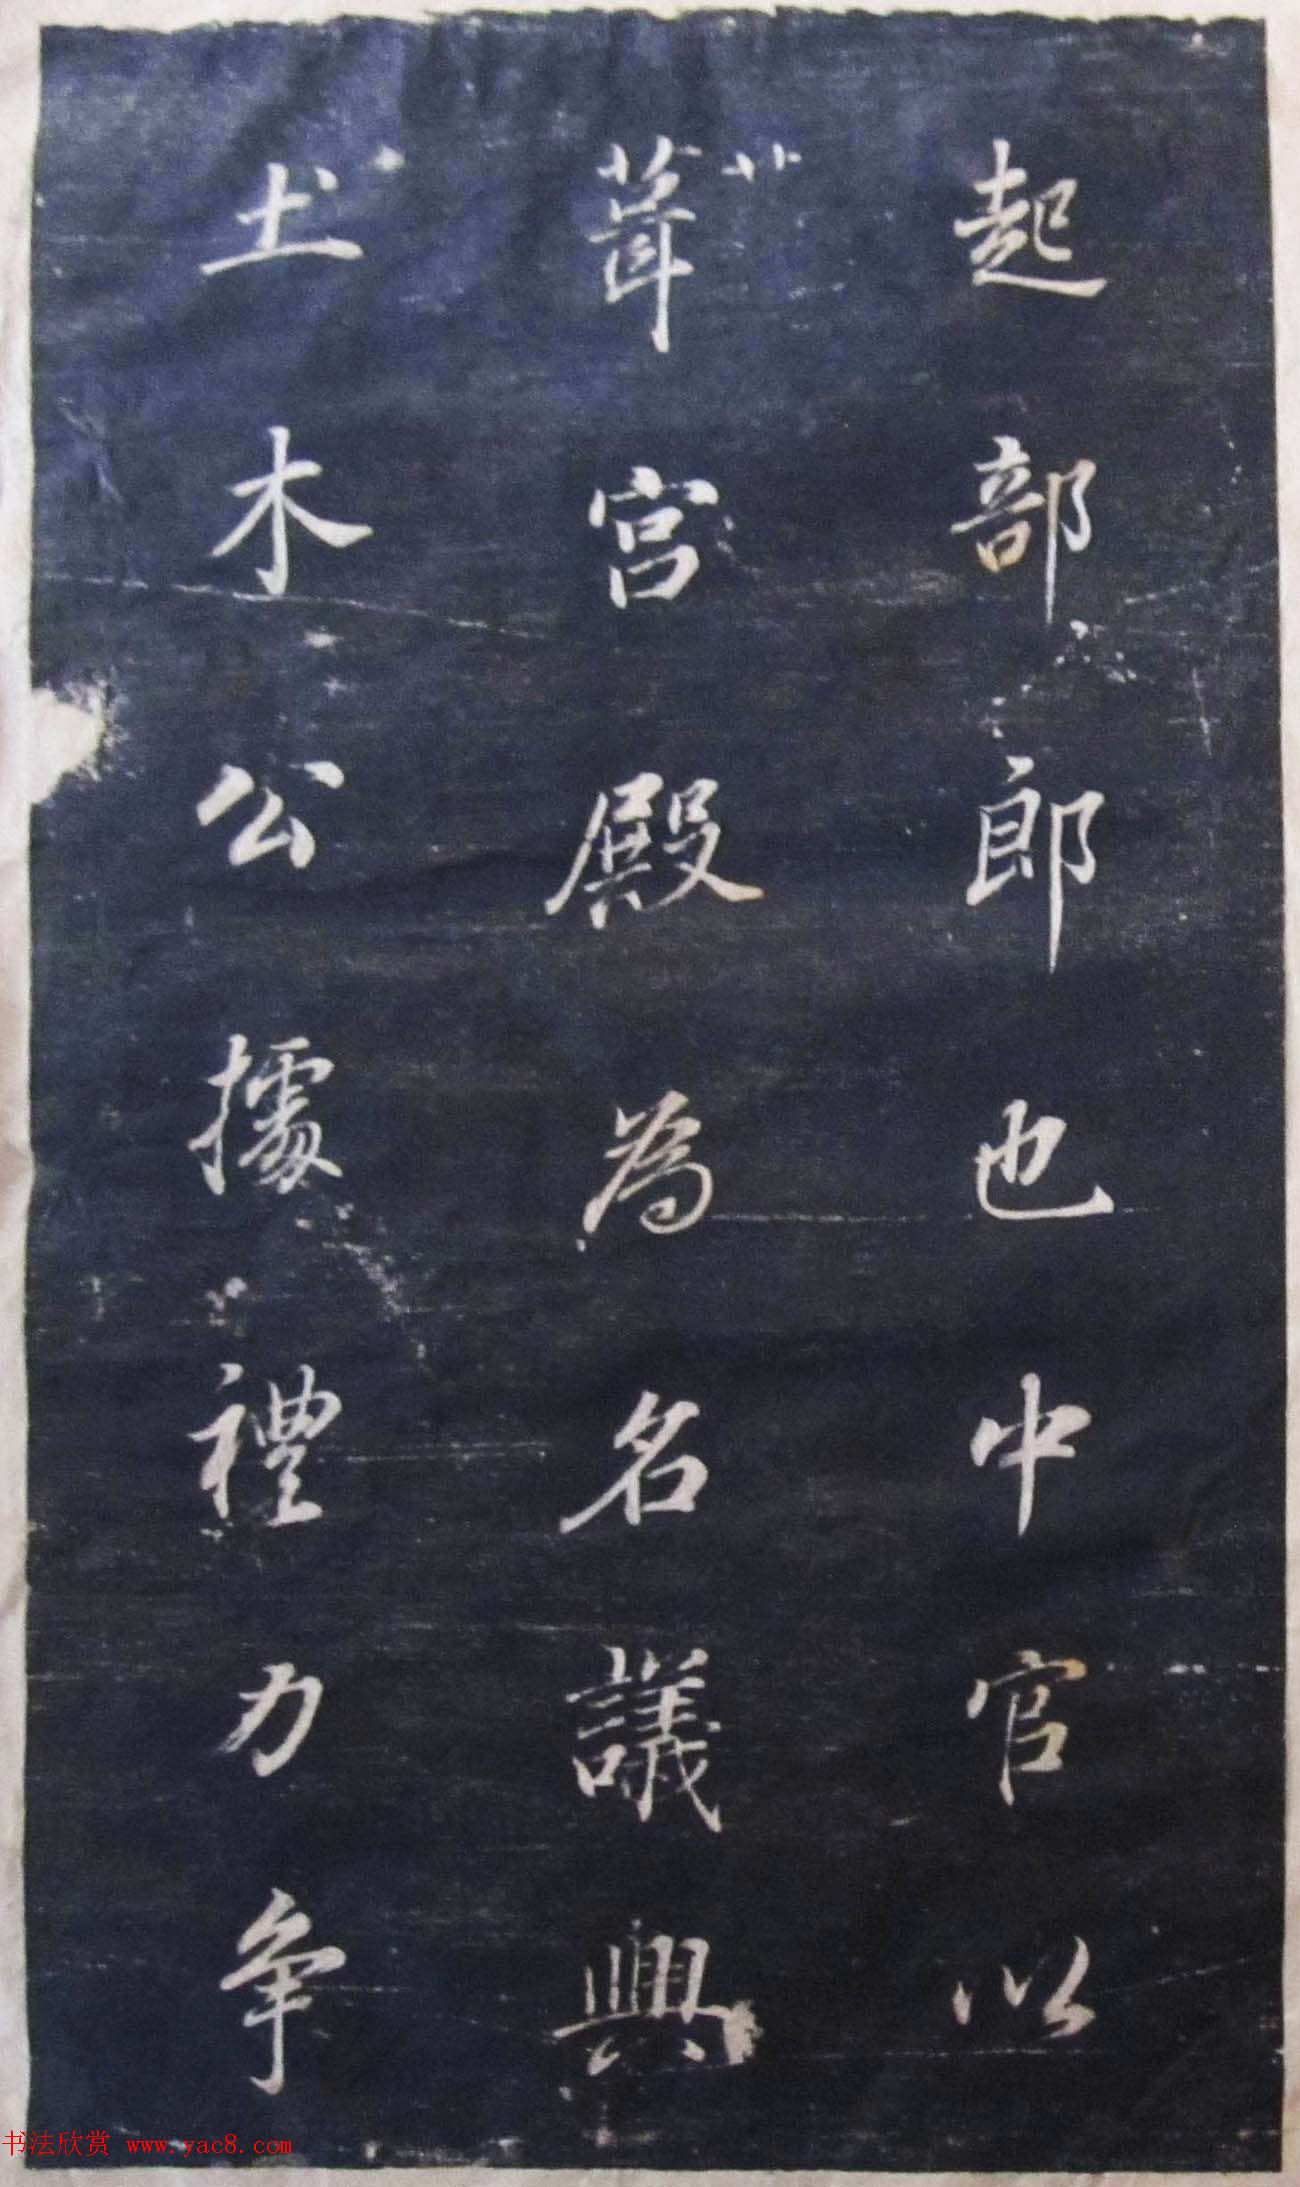 起部郎也中官以
葺宫殿為名議興
土木公據禮力争
书法欣赏 www.yac8.com